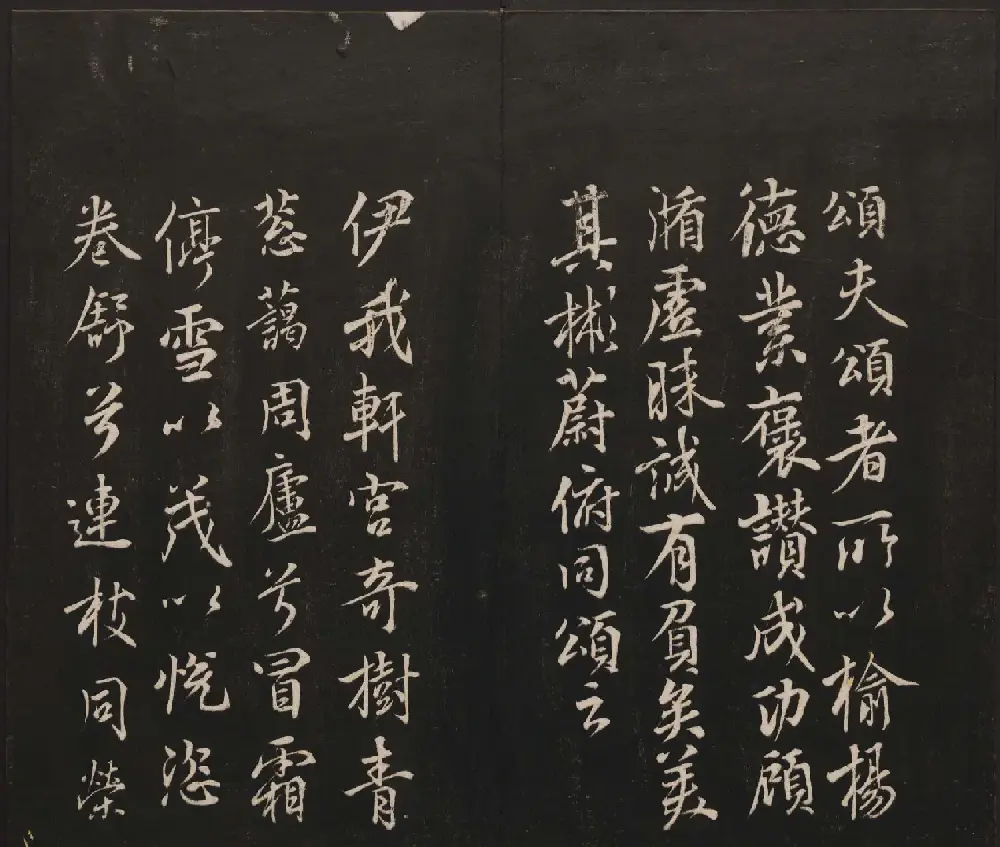 頌夫頌者所以榆楊
德業褒讃成功顧
循虛昧誠有負矣美
其彬蔚俯同頌云
伊我軒宮奇樹青
葱藹周廬兮冒霜
停雪以茂以悅恣
卷舒兮連枝同榮